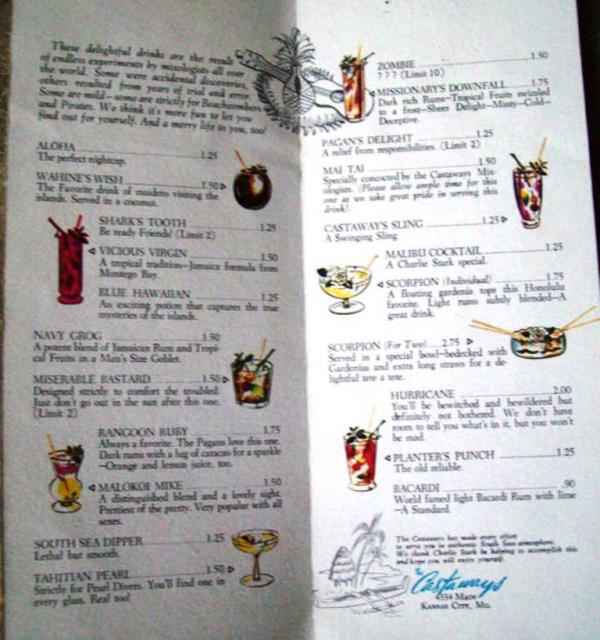 These delightful drinks are the result
of endless experiments by mixologists all over
the world. Some were accidental discoveries,
others resulted from years of trial and error.
Some are mild—some are strictly for Beachcombers
and Pirates. We think it's more fun to let you
find out for yourself. And a merry life to you, too!
ALOHA 1.25
The perfect nightcap.
WAHINE'S WISH 1.50
The Favorite drink of maidens visiting the
islands. Served in a coconut.
SHARK'S TOOTH 1.25
Be ready Friends! (Limit 2)
VICIOUS VIRGIN 1.50
A tropical tradition—Jamaica formula from
Montego Bay.
BLUE HAWAIIAN 1.25
An exciting potion that captures the true
mysteries of the islands.
NAVY GROG 1.50
A potent blend of Jamaican Rum and Tropi-
cal Fruits in a Man's Size Goblet.
MISERABLE BASTARD 1.50
Designed strictly to comfort the troubled.
Just don't go out in the sun after this one.
(Limit 2)
RANGOON RUBY 1.75
Always a favorite. The Pagans love this one.
Dark rums with a hag of caracao for a sparkle
—Orange and lemon juice, too.
MALOKOI MIKE 1.50
A distinguished blend and a lovely sight.
Prettiest of the pretty. Very popular with all
sexes.
SOUTH SEA DIPPER 1.25
Lethal but smooth.
TAHITIAN PEARL 1.50
Strictly for Pearl Divers. You'll find one in
every glass. Real too!
ZOMBIE 1.50
? ? ? (Limit 10)
MISSIONARY'S DOWNFALL 1.75
Dark rich Rums—Tropical Fruits swizzled
to a frost—Sheer Delight—Minty—Cold—
Deceptive.
PAGAN'S DELIGHT 1.25
A relief from responsibilities. (Limit 2)
MAI TAI 1.50
Specially concocted by the Castaways Mix-
ologists. (Please allow ample time for this
one as we take great pride in serving this
drink).
CASTAWAY'S SLING 1.25
A Swinging Sling
MALIBU COCKTAIL 1.25
A Charlie Stark special.
SCORPION (Individual) 1.75
A floating gardenia tops this Honolulu
favorite. Light rums subtly blended—A
great drink.
SCORPION (For Two) 2.75
Served in a special bowl—bedecked with
Gardenias and extra long straws for a de-
lightful tete a tete.
HURRICANE 2.00
You'll be bewitched and bewildered but
definitely not bothered. We don't have
room to tell you what's in it, but you won't
be mad.
PLANTER'S PUNCH 1.25
The old reliable.
BACARDI .90
World famed light Bacardi Rum with lime
—A Standard.
The Castaways has made every effort
to serve you in authentic South Seas atmosphere.
We thank Charlie Stark he is helping to accomplish this
and hope you will enjoy yourself.
the Castaways
4334 Main
Kansas City, Mo.